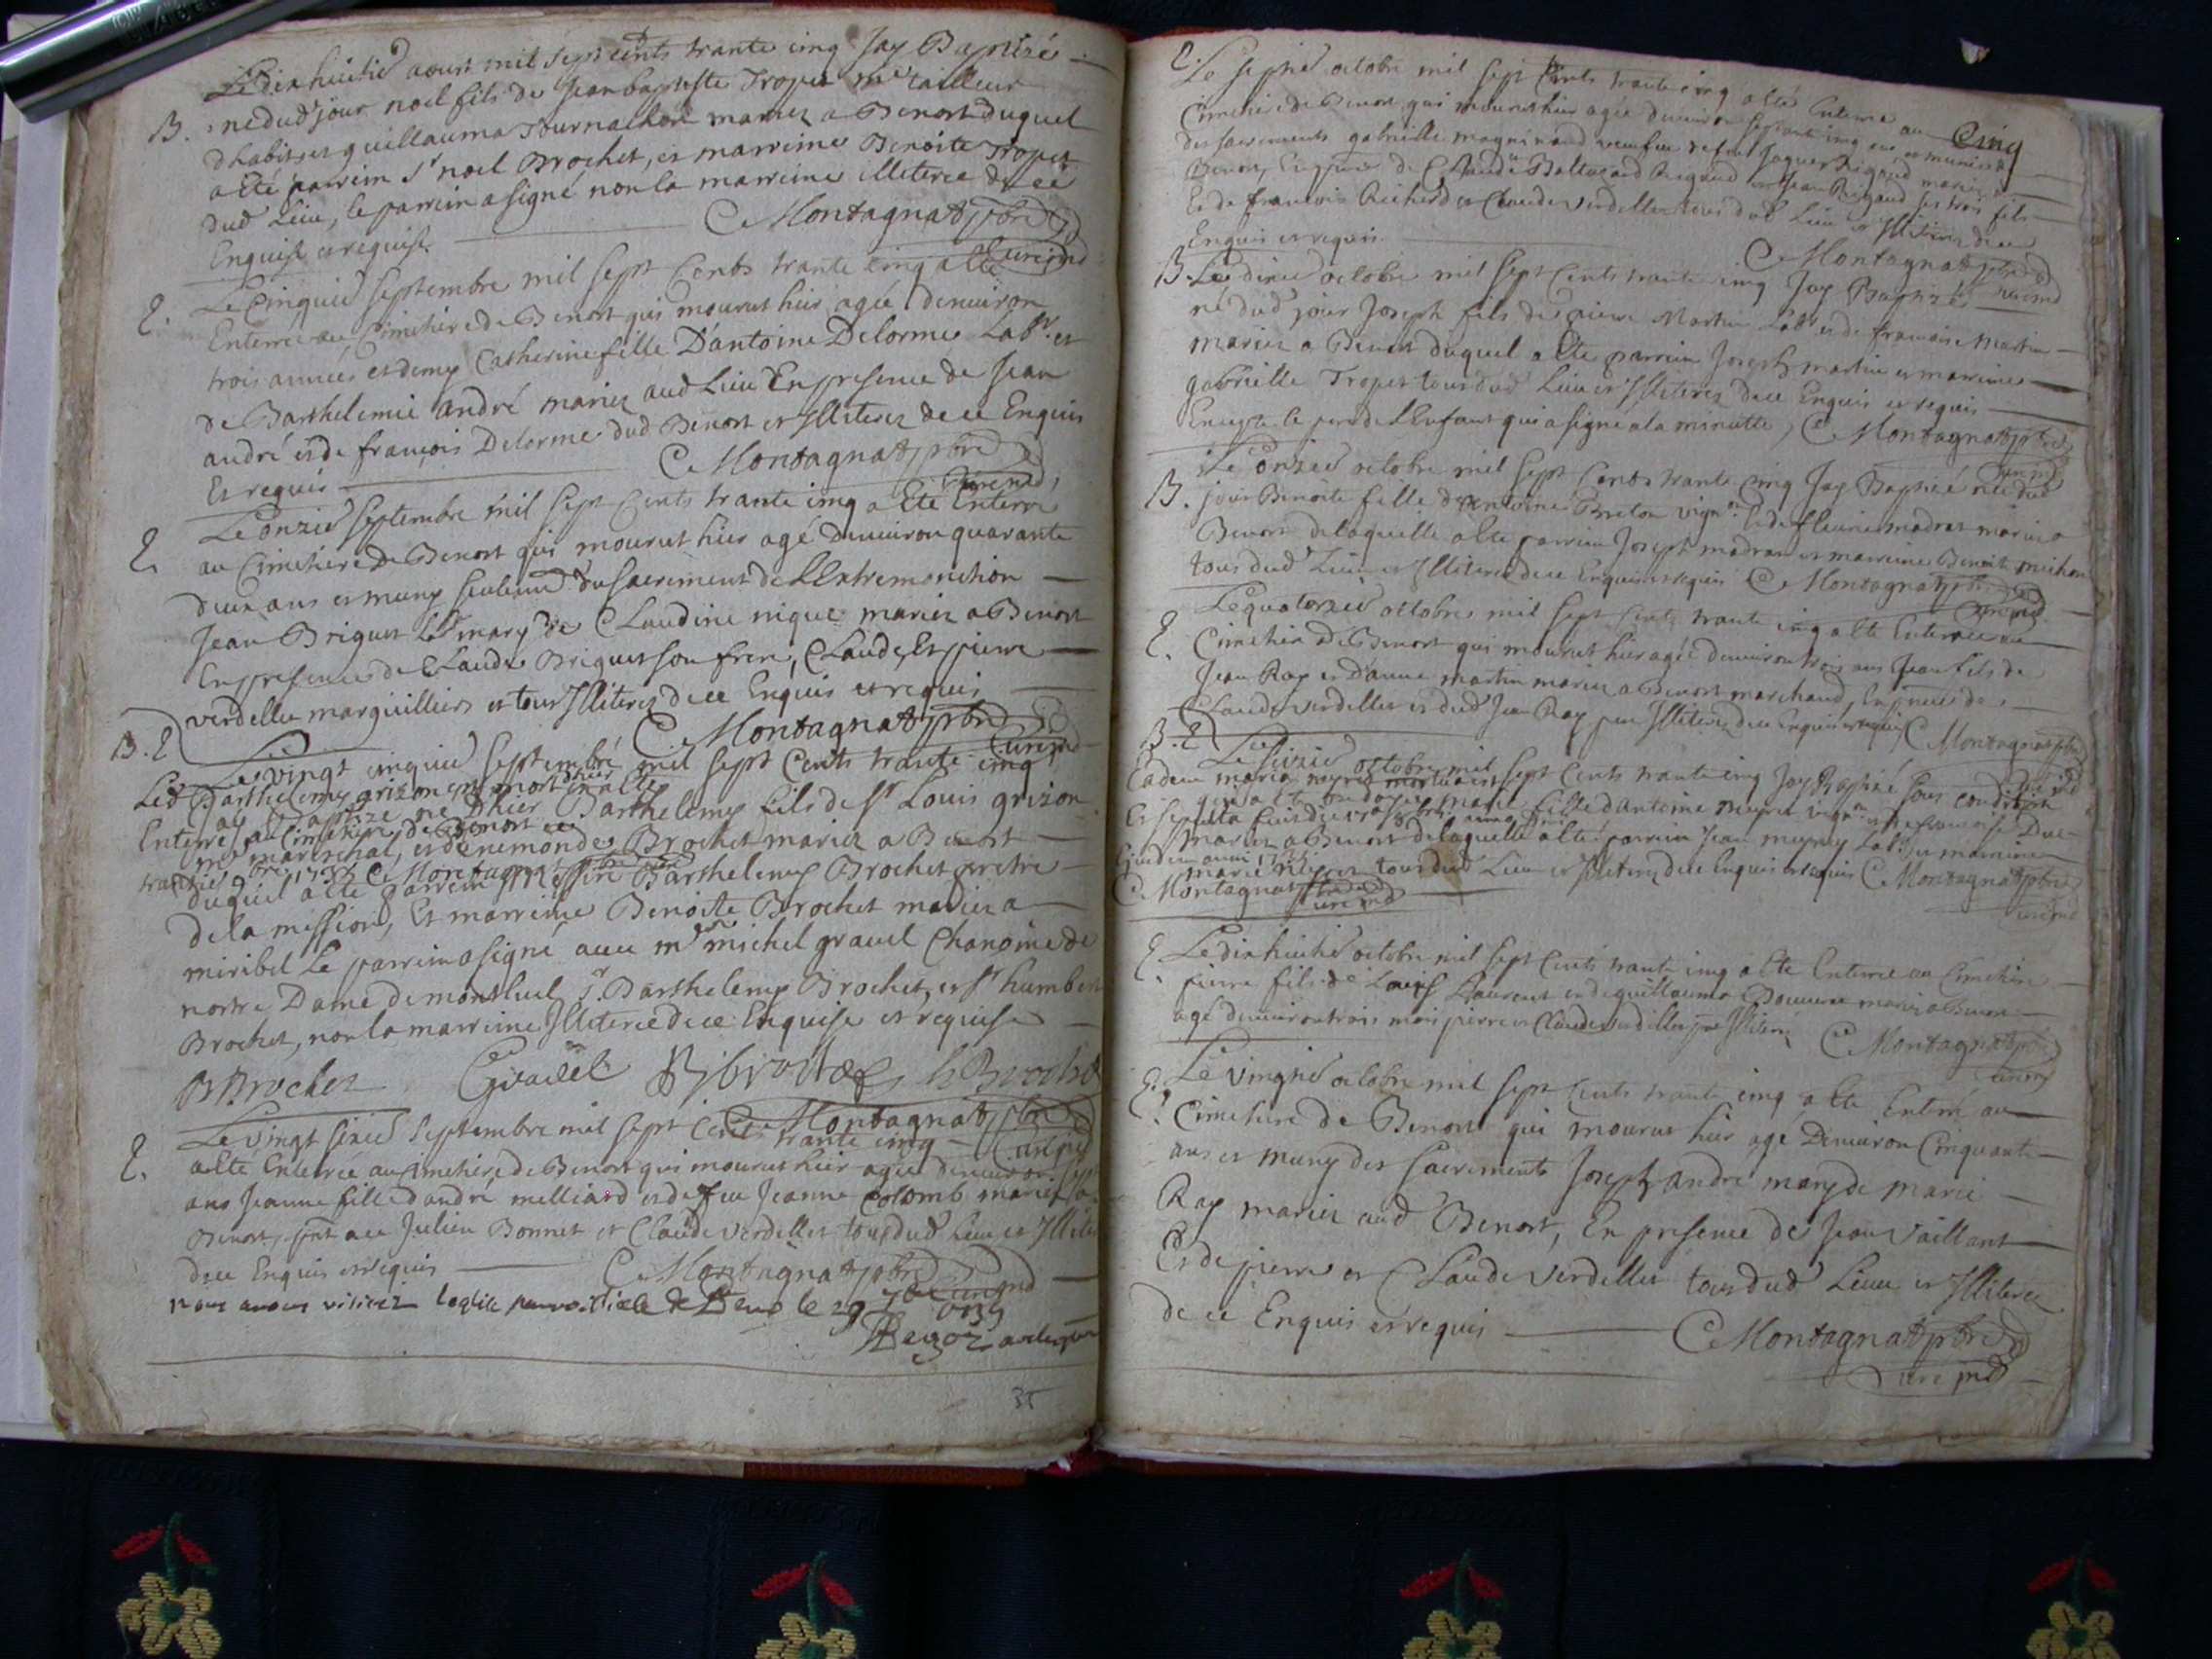 Le dix huitie aoust mil sept cents trante cinq Jay Baptisé
B. ne dud jour noel fils de Jean baptiste Tropet me tailleur
dhabits et guillauma Tournachon mariez a Benost duquel
a Eté parrein Sr noel Brochet, et marreine Benoite Tropet
dud Lieu, le parrein a signé non la marreine illiterée de ce
Enquise et requise. C Montagnat ptre
Curé md
E. Le Cinquie Septembre mil Sept Cents trante cinq a Eté
Enterrée au Cimetiere de Benost qui mourut hier agée denviron
trois années et demy Catherine fille D'antoine Delorme Labr. et
de Barthelemie andré mariez aud Lieu En presence de Jean
andré et de françois Delorme dud Benost et Illiterez de ce Enquis
Et requis C Montagnat ptre
Curé md
E. Le onzie Septembre mil Sept Cents trante cinq a Eté Enterré
au Cimetiere De Benost qui mourut hier agé denviron quarante
deux ans et muny seulemt du sacrement de l'Extremonction
Jean Briquet Labr mary de Claudine nique mariez a Benost
En presence de Claude Briquet son frere, Claude, Et pierre
verdellet marguilliers et tous Illiterez de ce Enquis et requis
C Montagnat ptre
Curé md
B. E Le vingt cinquie Septembre mil sept Cents trante cinq
Led Barthelemy grizon mort hier a Eté
Jay Baptizé né D'hier Barthelemy fils de Sr Louis grizon
Enterré au Cimetiere de Benost ce
me mareschal, et d'enemonde Brochet mariez a Benost
trantie 7bre 1735 C Montagnat ptre curé
duquel a Eté parrein Messire Barthelemy Brochet pretre
de la mission, Et marreine Benoite Brochet mariée a
miribel Le parrein a signé avec mre michel gravel Chanoine de
nostre Dame de montluel Sr. Barthelemy Brochet, et Sr humbert
Brochet, non la marreine Illiterée de ce Enquise et requise
B Brochet Gravel B brochet h Brochet
C Montagnat ptre
Curé md
Le vingt sixie Septembre mil sept Cents trante cinq
E. a Eté Enterrée au Cimetiere de Benost qui mourut hier agée denviron sept
ans Jeanne fille d'andré milliard et de feu Jeanne Colomb mariez a
Benost, pnt avec Julien Bonnet et Claude verdellet tous dud Lieu et Illiterez
de ce Enquis et requis C Montagnat ptre
Curé md
nous avons visitéz leglise parroissiale de Benô le 29 7bre 1735
35
E. Le septie octobre mil sept Cents trante cinq a Eté Enterrée au
Cinq
Cimetiere de Benost qui mourut hier agée denviron septante cinq ans et munie
des sacrements gabrielle magninand veufue de feu Jaques Rigaud mariez a
Benost, En pnce de Claude Baltazard Rigaud et Jean Rigaud ses trois fils
Et de francois Richerd et Claude verdellet tous dud Lieu et Illiterez de ce
Enquis et requis C Montagnat ptre
curé md
B. Le dixie octobre mil Sept Cents trante cinq Jay Baptizé
né dud jour Joseph fils de pierre Martin Labr et de francoise martin
mariez a Benost duquel a Eté parrein Joseph martin et marreine
gabrielle Tropet tous dud Lieu et Illiterez de ce Enquis et requis
Excepté le pere de l'Enfant qui a signé a la minutte, C Montagnat ptre
curé md
Le onzie octobre mil Sept Cents trante Cinq Jay Baptizé née dud
B. jour Benoite fille d'antoine Breton vign. Et de fleurie madras mariez a
Benost de laquelle a Eté parrein Joseph madras et marreine Benoite michon
tous dud Lieu et Illiterez de ce Enquis et requis C Montagnat ptre
curé md
Le quatorzie octobre mil Sept Cents trante cinq a Eté Enterré au
E. Cimetiere de Benost qui mourut hier agé denviron trois ans Jean fils de
Jean Ray et D'anne martin mariez a Benost marchand, En pnce de
Claude verdellet et dud Jean Ray pere Illiterez de ce Enquis et requis C Montagnat ptre
curé md
B. E Le seizie octobre mil sept Cents trante cinq Jay Baptizé sous condition
Eadem maria meyret mortua est
qui a Eté ondoyée marie fille d'antoine meyret vign et de francoise Duc
Et sepulta fuit die
mariez a Benost de laquelle a Eté parrein Jean meyret Labr et marreine
Ejusdem anni 1735
marie tous dud Lieu et Illiterez de ce Enquis et requis C Montagnat ptre
C Montagnat ptre curé md
curé md
E. Le dix huitie octobre mil sept Cents trante cinq a Eté Enterré au Cimetiere
pierre fils de Louis Laurent et de guillauma mariez a Benost
agé denviron trois mois pierre et Claude verdellet pnt Illiterez C Montagnat ptre
curé md
E. Le vingtie octobre mil sept Cents trante cinq a Eté Enterré au
Cimetiere de Benost qui mourut hier agé Denviron Cinquante
ans et muny des sacrements Joseph andré mary de marie
Ray mariez aud Benost, En presence de Jean vaillant
Et de pierre et Claude verdellet tous dud Lieu et Illiterez
de ce Enquis et requis C Montagnat ptre
curé md